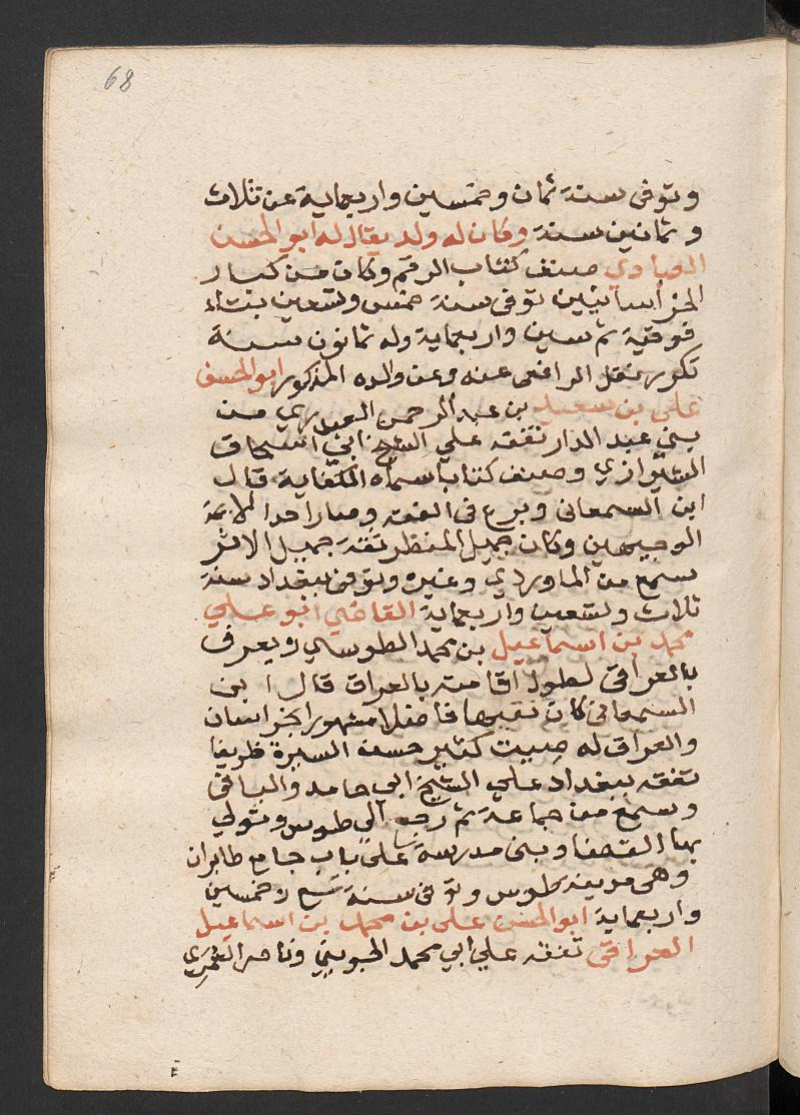 68
وتوفى سنة ثمان وخمسين واربعماية عن ثلاث
وثمانين سنة وكان له ولد يقال له ابو الحسن
العبادي صنف كتاب الرقم وكان من كبار
الخراسانيين توفى سنة خمس وتسعين بتاء
فوقية ثم سين واربعماية وله ثمانون سنة
تكرر نقل الرافعى عنه وعن والده المذكور ابو الحسن
على بن سعيد بن عبد الرحمن العبدري من
بني عبد الدار تفقه علي الشيخ ابي اسحاق
الشيرازي وصنف كتابا سماه الكفاية قال
ابن السمعانى وبرع فى الفقه وصار احد الايمة
الوجيهين وكان جميل المنظر ثقة جميل الاثر
سمع من الماوردي وغيره وتوفى ببغداد سنة
ثلاث وتسعين واربعماية القاضي ابو علي
محمد بن اسماعيل بن محمد الطوسي ويعرف
بالعراقى لطول اقامته بالعراق قال ابن
السمعانى كان فقيها فاضلا مشهورا بخراسان
والعراق له صيت كثير حسن السيرة ظريفا
تفقه ببغداد علي الشيخ ابي حامد والبافى
وسمع من جماعة ثم رجع الي طوس وتولي
بها القضا وبنى مدرسة على باب جامع طابران
وهى مدينة بطوس وتوفى سنة تسع وخمسين
واربعماية ابو الحسن على بن محمد بن اسماعيل
العراقى تفقه علي ابي محمد الجويني وناصر العمري